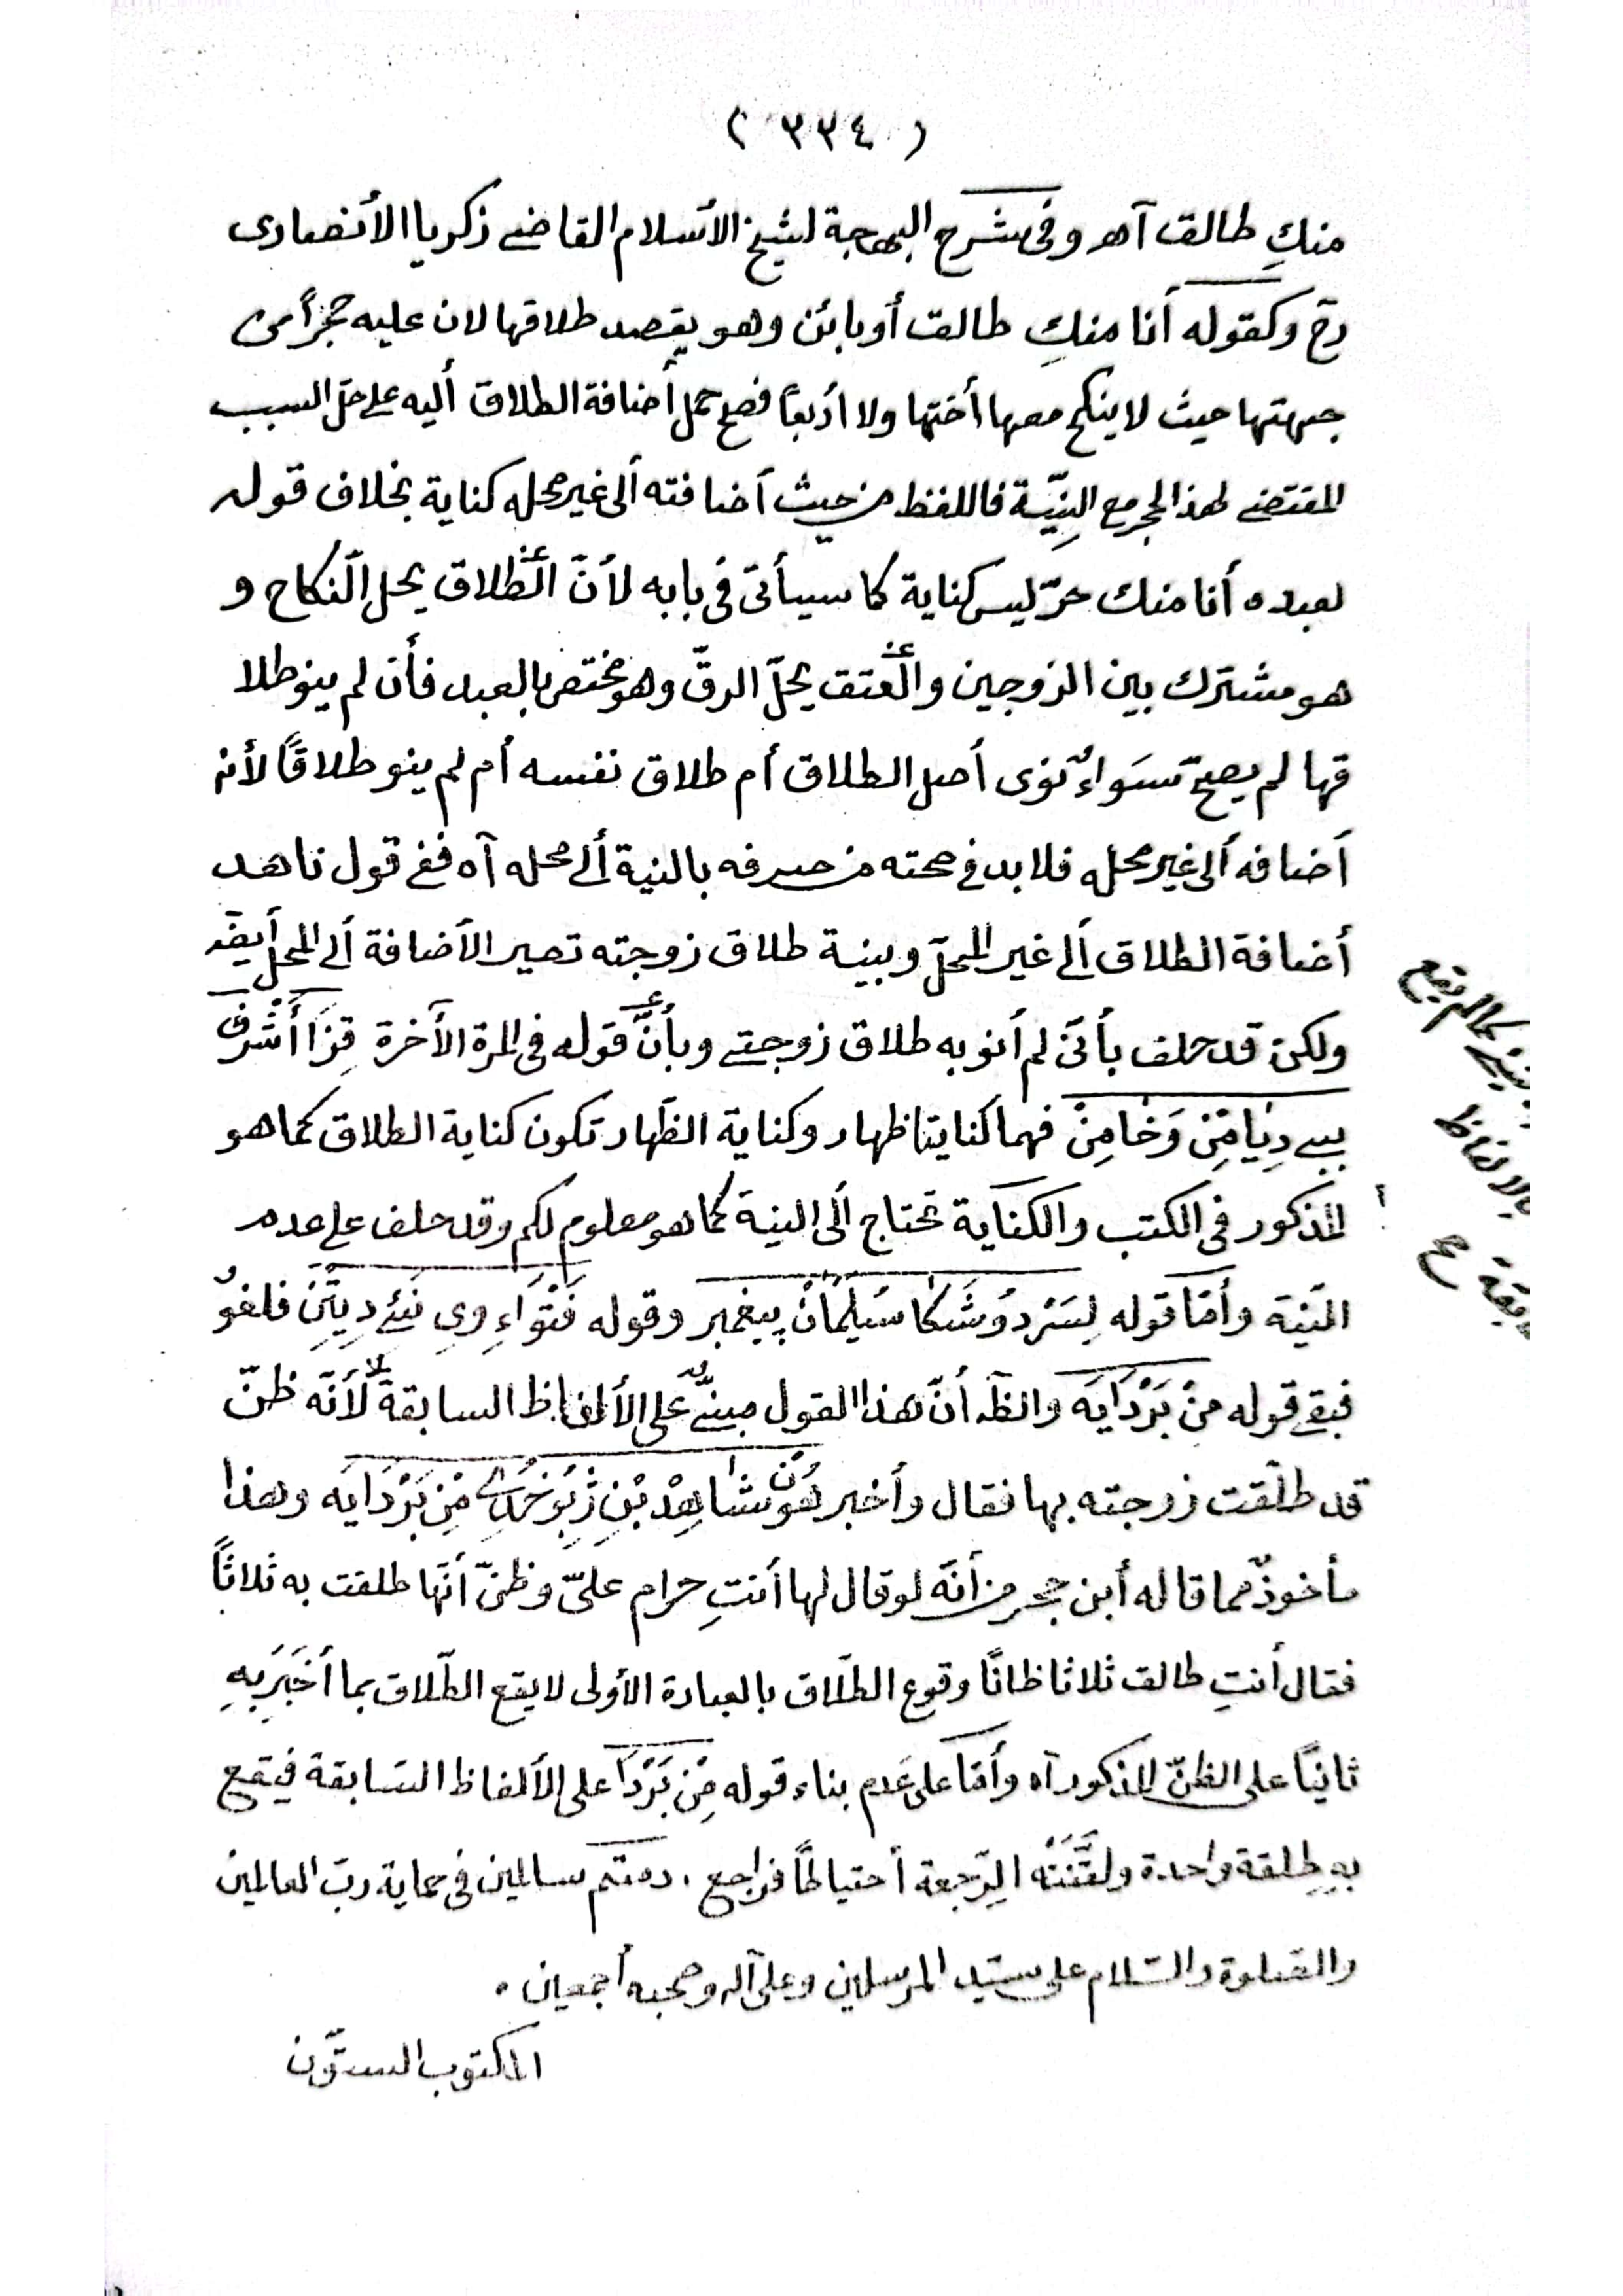 ( ٣٣٤ )
منكِ طالق آهـ وفى شرح البهجة لشيخ الأسلام القاضى ذكريا الأنصارى
رح وكقوله أنا منكِ طالق أو بائن وهو يقصد طلاقها لان عليه حجراً من
جهتها حيث لا ينكح معها أختها ولا أربعاً فصح حمل أضافة الطلاق أليه على حلّ السبب
المقتضى لهذا الحجر مع النِيّة فاللفظ من حيث أضافته ألى غير محله كناية بخلاف قوله
لعبده أنا منك حرّ ليس كناية كما سيأتى فى بابه لأنّ الطّلاق يحل النّكاح و
هو مشترك بين الزوجين والعتق يحلّ الرقّ وهو مختص بالعبد فأن لم ينو طلا
قها لم يصحّ سَواءٌ نوى أصل الطلاق أم طلاق نفسه أم لم ينو طلاقاً لأنه
أضافه ألى غير محله فلا بد فى صحته من صرفه بالنية ألى محله آه ففى قول ناهد
أضافة الطلاق ألى غير المحلّ وبنية طلاق زوجته تصير الأضافة ألى المحل أيضَ
ولكن قد حلف بأنّى لم أنو به طلاق زوجتى وبأنَّ قوله فى المرة الأخرة قِزَا أَشْرَف
ببى دِيَا مِنْ وَخَا مِنْ فهما كنايتا ظهار وكناية الظّهار تكون كناية الطلاق كما هو
المذكور فى الكتب والكناية تحتاج ألى النية كما هو معلوم لكم وقد حلف على عدم
النّية وأمّا قوله لِسَرْ دُوشَكَا سُلَيْمَانْ پيغمبر وقوله فَتْوَاءِ وِى نَئِ دِيِتِنْ فلغوٌ
فبقى قوله مِنْ بَرْدَايَه والظّه أنّ هذا القول مبنىٌّ على الألفاظ السابقة لأنّه ظنّ
قد طلّقت زوجته بها فقال وأخبر هُون شَاهِدْ بْنِ مِنْ بَرْدَايَه وهذا
مأخوذٌ مما قاله أبن حجر من أنّه لو قال لها أنتِ حرام علىّ وظنّ أنّها طلقت به ثلاثاً
فقال أنتِ طالق ثلاثا ظانّاً وقوع الطلّاق بالعبارة الأولى لا يقع الطّلاق بما أخبَرَ بِهِ
ثانياً على الظنّ المذكور آه وأمّا على عَدم بناء قوله مِنْ بَرْدَا على الألفاظ السّابقة فيقع
بهِ طِلقة واحدة ولقَّنَتْه الرّجعة أحتياطاً فراجع . دمتم سالمين فى حماية ربّ العالمين
والصّلوة والسّلام على سيّد المرسلين وعلى آله وصحبه أجمعين .
المكتوب الستّون